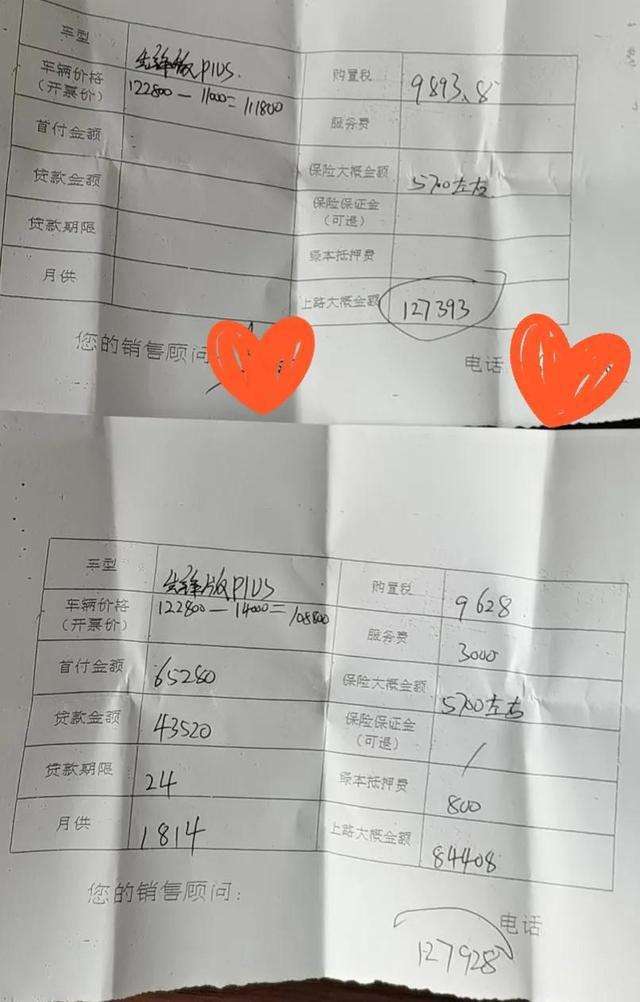 车型 先锋版plus.
车辆价格（开票价） 122800－11000＝111800
购置税 9893.8
首付金额
服务费
贷款金额
保险大概金额 5700左右
贷款期限
保险保证金（可退）
绿本抵押费
月供
上路大概金额 127393
您的销售顾问
电话
车型 先锋版plus
车辆价格（开票价） 122800－14000＝108800
购置税 9628
首付金额 65280
服务费 3000
贷款金额 43520
保险大概金额 5700左右
贷款期限 24
保险保证金（可退） /
月供 1814
绿本抵押费 800
上路大概金额 84408
您的销售顾问：
电话
127928